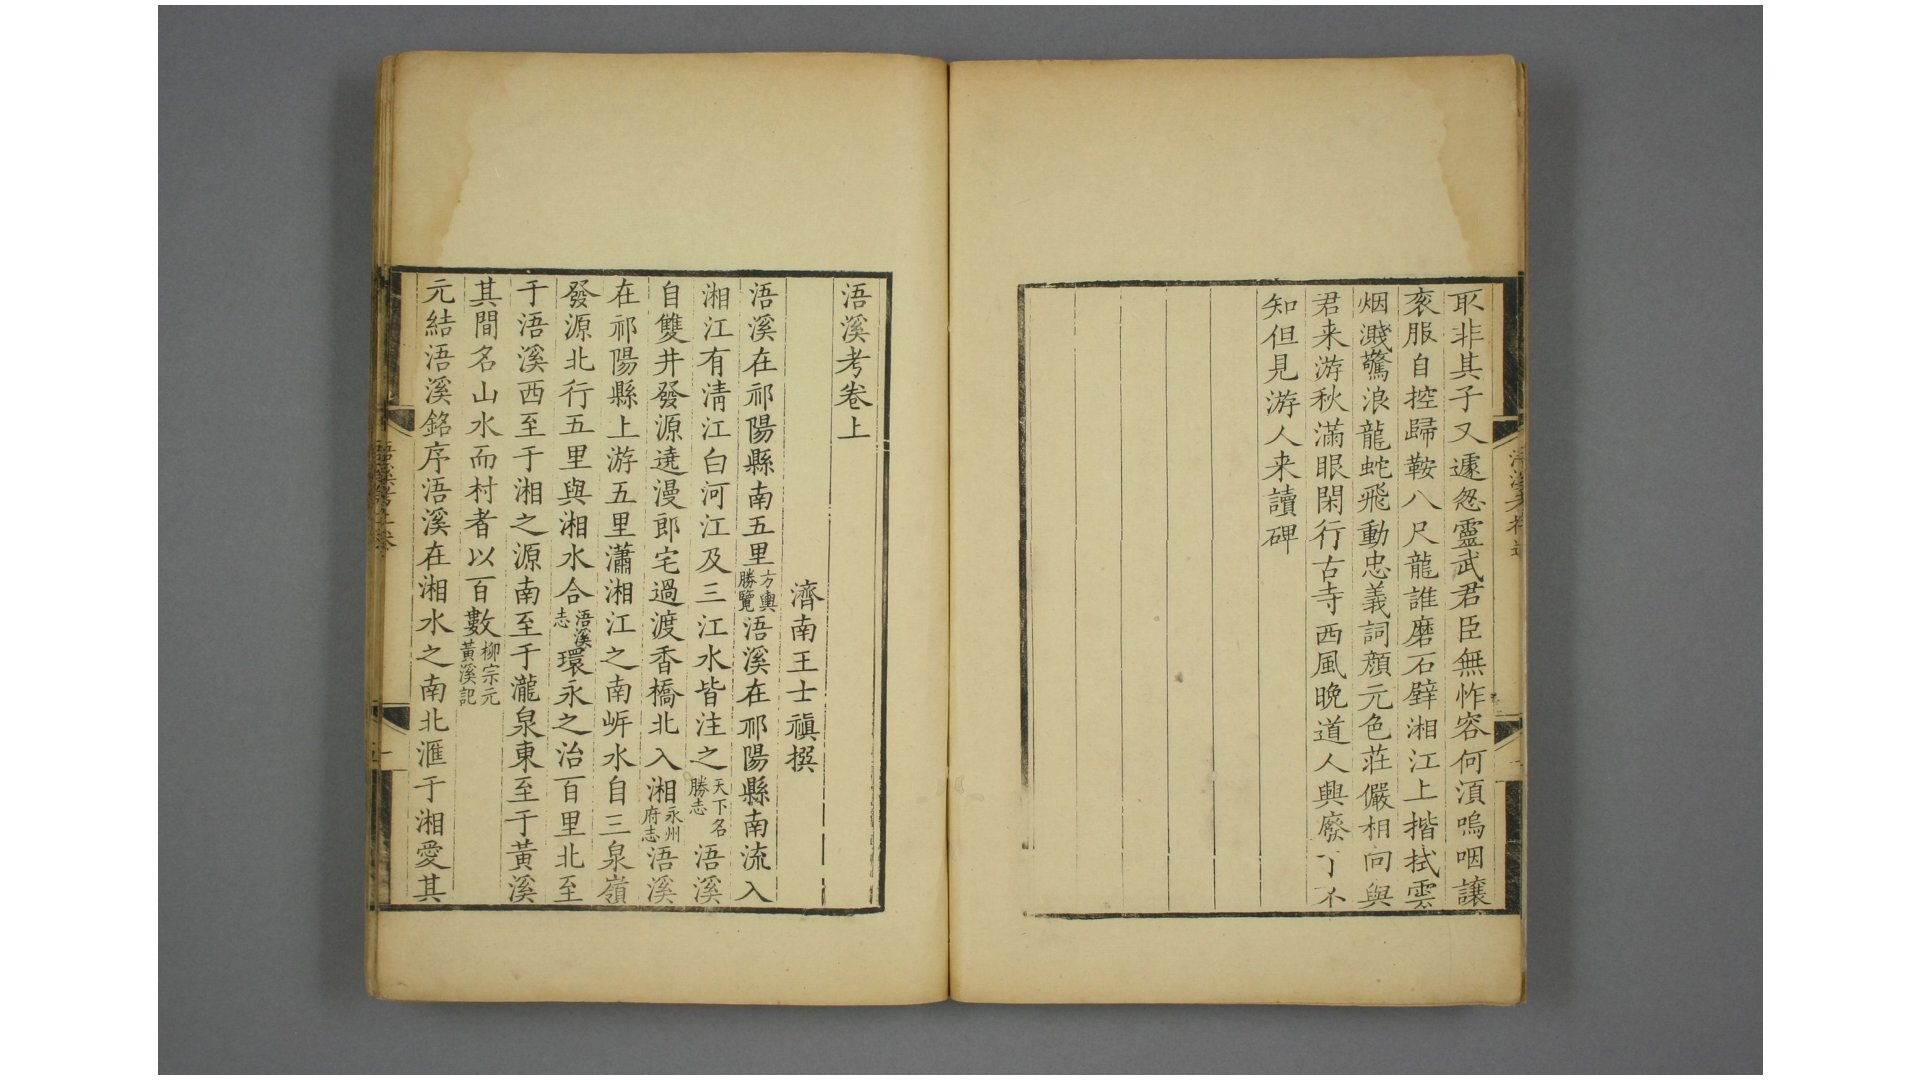 取非其子又遽怱靈武君臣無怍容何湏嗚咽讓
衮服自控歸鞍八尺龍誰磨石壁湘江上揩拭雲
烟濺驚浪龍蛇飛動忠義詞顔元色莊儼相向與
君来游秋滿眼閑行古寺西風晚道人興廢了不
知但見游人来讀碑
浯溪考卷上
濟南王士禛撰
浯溪在祁陽縣南五里方輿勝覽浯溪在祁陽縣南流入
湘江有清江白河江及三江水皆注之天下名勝志浯溪
自雙井發源遶漫郎宅過渡香橋北入湘永州府志浯溪
在祁陽縣上游五里瀟湘江之南岍水自三泉嶺
發源北行五里與湘水合浯溪志環永之治百里北至
于浯溪西至于湘之源南至于瀧泉東至于黃溪
其間名山水而村者以百數柳宗元黃溪記
元結浯溪銘序浯溪在湘水之南北滙于湘愛其